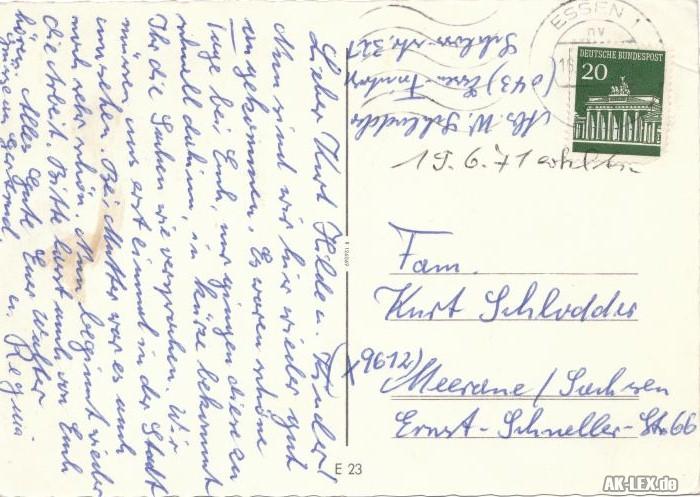 Lieber Kurt Hilde u. Kinder!
Nun sind wir hier wieder gut
angekommen. Es waren schöne
Tage bei Euch, nur gingen diese zu
schnell dahin, in kürze bekommt
Ihr die Sachen wie versprochen. Wir
müssen nun erst einmal in der Stadt
umsehen. Bei Mutter war es auch
noch sehr schön. Nun beginnt wieder
die Arbeit. Bitte lasst auch von Euch
hören. Alles Gute Euer Walter
u. Regina
Abs. W. Schlodder
(643) Essen-
Schloss-str. 321
ESSEN 1
DEUTSCHE BUNDESPOST
20
19.6.71 erhalten
Fam.
Kurt Schlodder
(X9612)
Meerane / Sachsen
Ernst-Schneller-Str. 66
E 23
AK-LEX.de